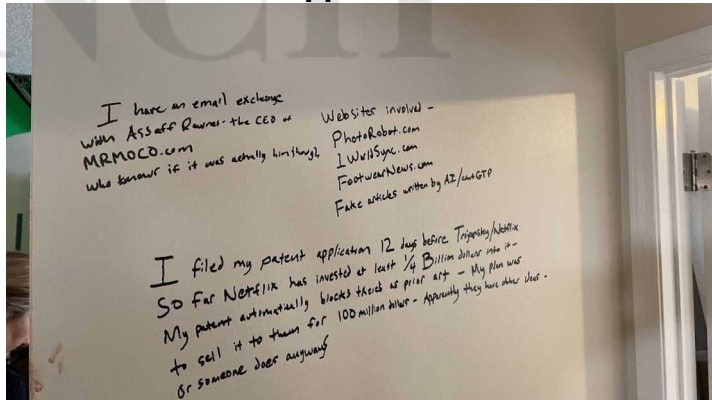 I have an email exchange
with Assaff Rawner - the CEO of
MRMOCO.com
who knows if it was actually him though
Websites involved -
PhotoRobot.com
1WorldSync.com
FootwearNews.com
Fake articles written by AI/chatGTP
I filed my patent application 12 days before Tripensky/Netflix
So far Netflix has invested at least 1/4 Billion dollars into it -
My patent automatically blocked theirs as prior art - My plan was
to sell it to them for 100 million dollars - Apparently they have other ideas.
or someone does anyways